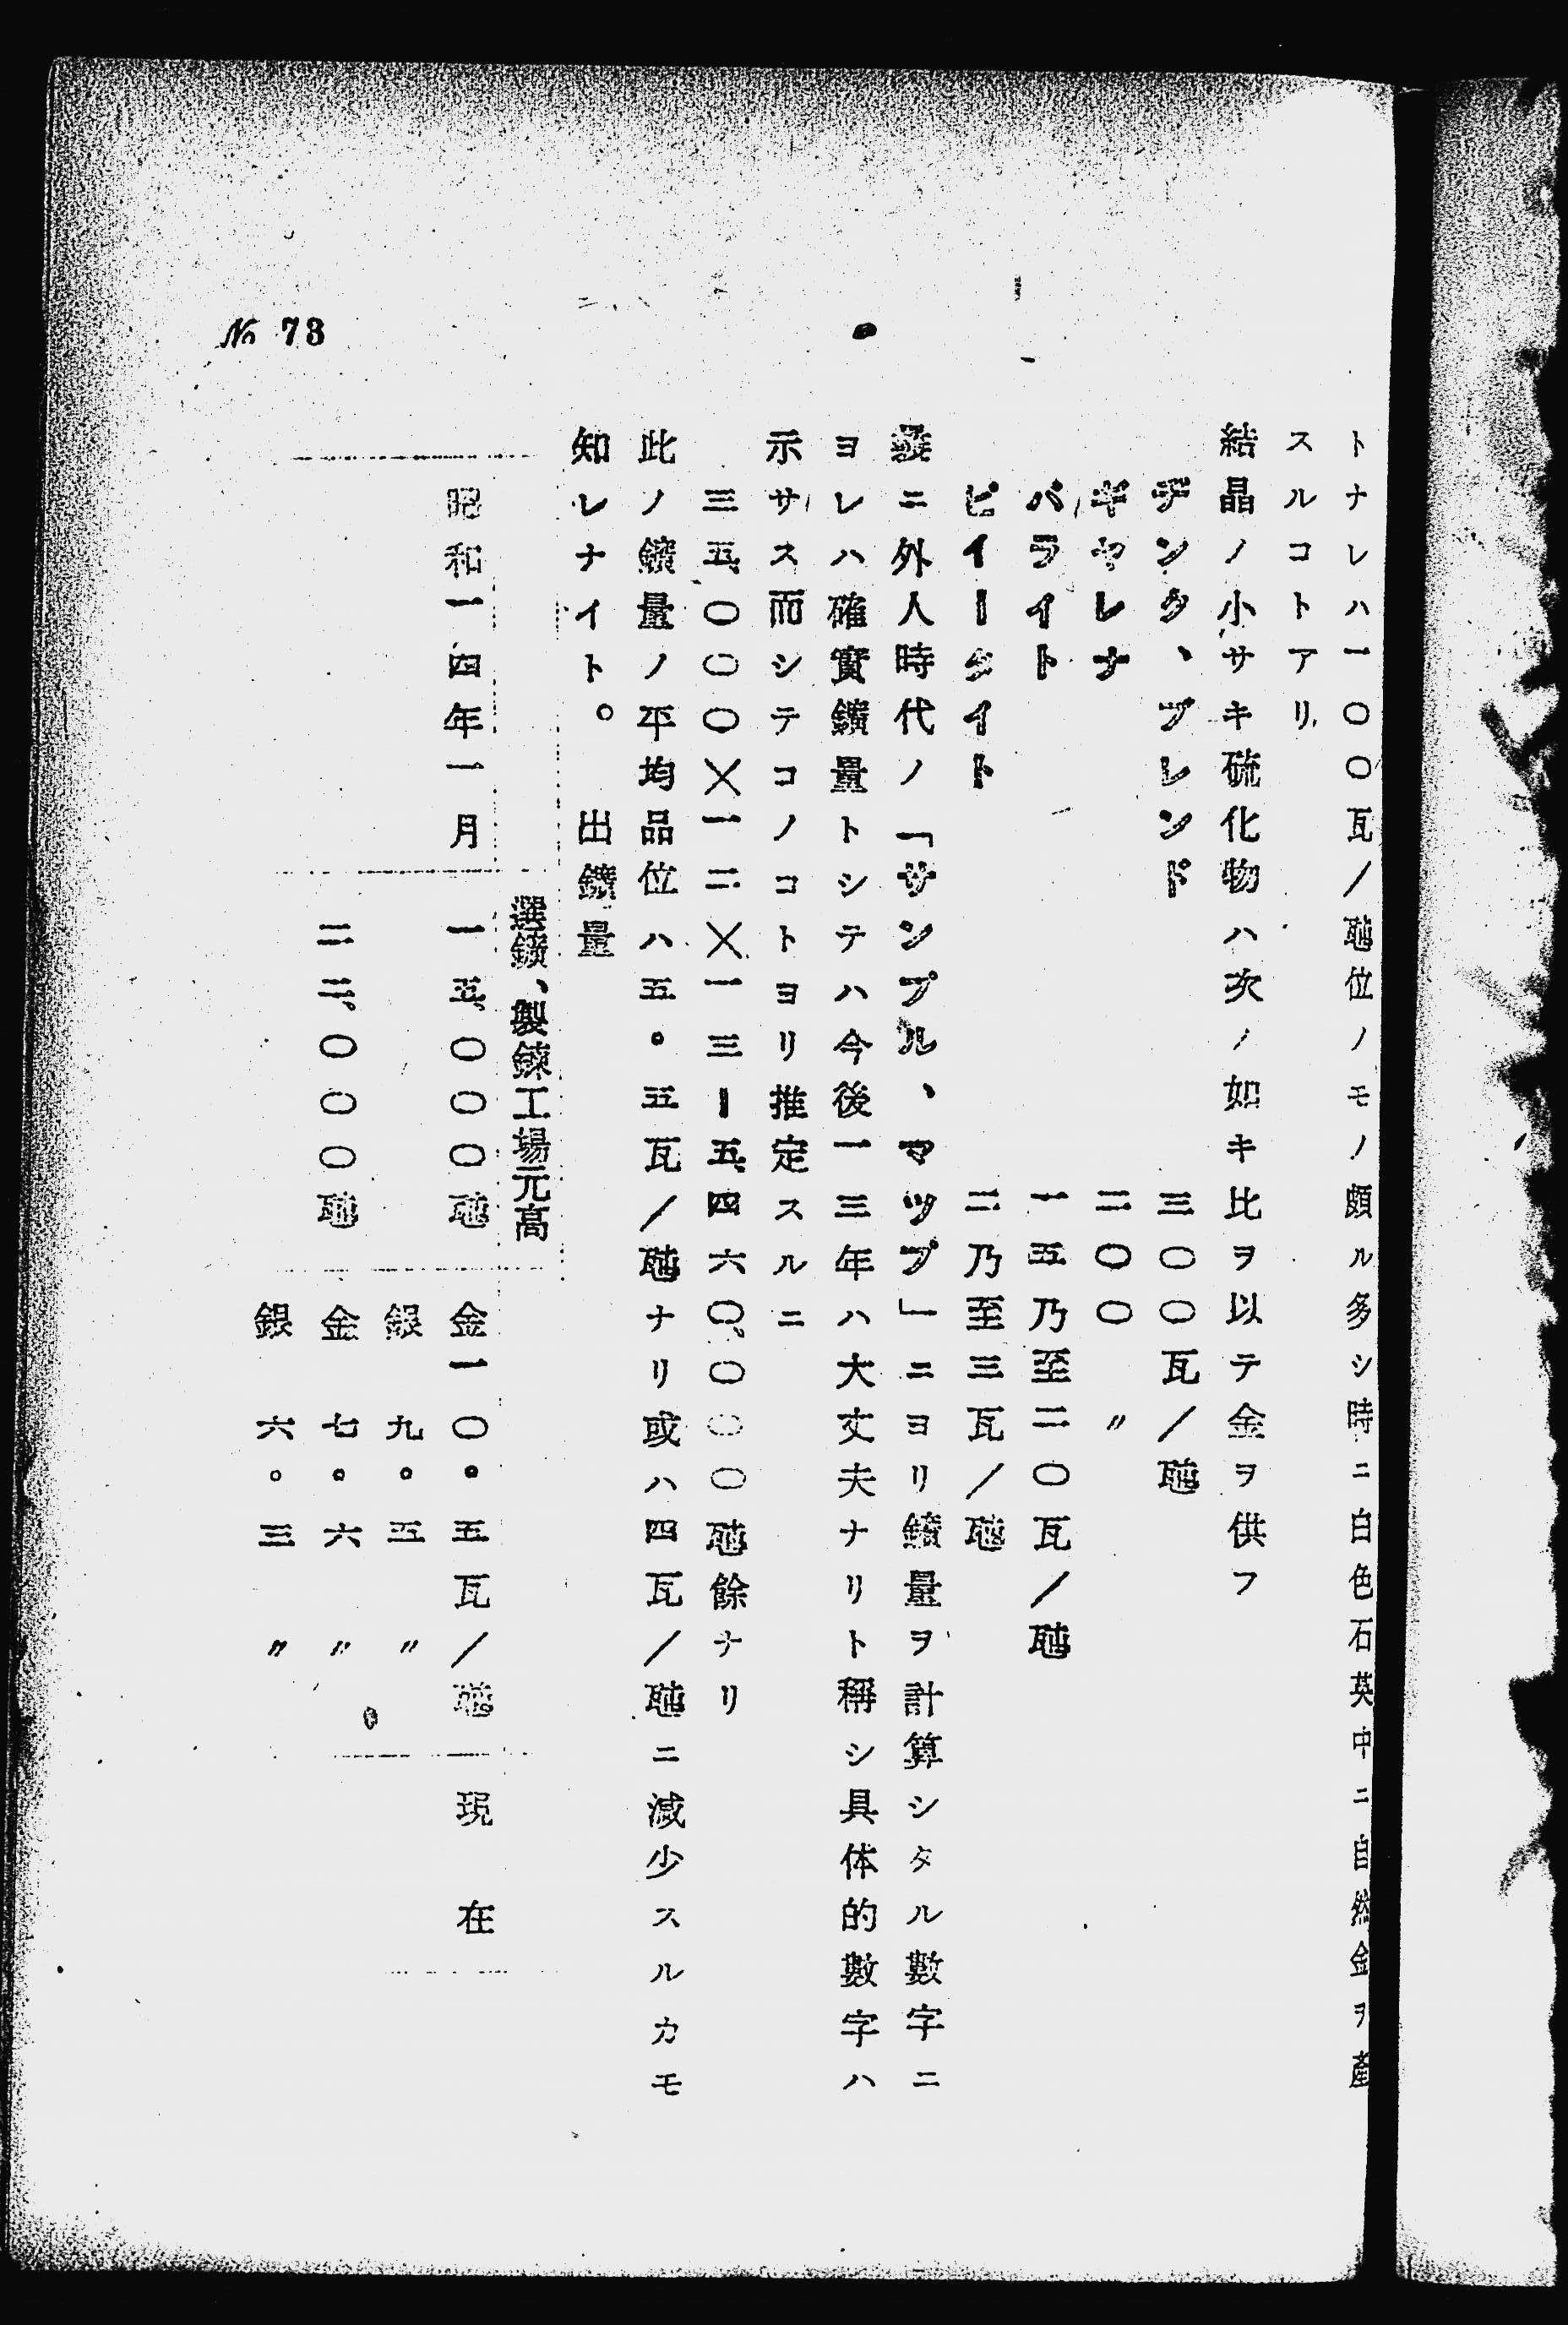 トナレハ一〇〇瓦／瓲位ノモノ頗ル多シ時ニ白色石英中ニ自然金ヲ產
スルコトアリ
結晶ノ小サキ硫化物ハ次ノ如キ比ヲ以テ金ヲ供フ
ヂンク、ブレンド 三〇〇瓦／瓲
ギヤレナ 二〇〇 〃
バライト 一五乃至二〇瓦／瓲
ピイータイト 二乃至三瓦／瓲
ニ外人時代ノ「サンプル、マツプ」ニヨリ鑛量ヲ計算シタル數字ニ
ヨレハ確實鑛量トシテハ今後一三年ハ大丈夫ナリト稱シ具体的數字ハ
示サス而シテコノコトヨリ推定スルニ
三五、〇〇〇×一二×一三ー五、四六〇、〇〇〇瓲餘ナリ
此ノ鑛量ノ平均品位ハ五。五瓦／瓲ナリ或ハ四瓦／瓲ニ減少スルカモ
知レナイト。 出鑛量
選鑛、製鍊工場元高
昭和一四年一月 一五、〇〇〇瓲 金一〇。五瓦／瓲 現在
銀 九。五 〃
二二、〇〇〇瓲 金 七。六 〃
銀 六。三 〃
№ 73